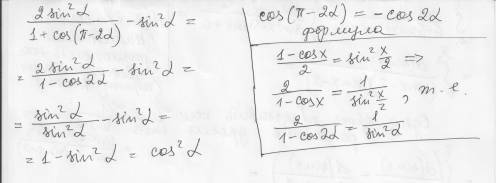 2sin²α / (1 + cos(π-2α)) - sin²α =
= 2sin²α / (1 - cos2α) - sin²α =
= sin²α / sin²α - sin²α =
= 1 - sin²α = cos²α
cos(π-2α) = -cos2α
формула
(1 - cosx) / 2 = sin² x/2 =>
2 / (1 - cosx) = 1 / (sin² x/2), т.е.
2 / (1 - cos2α) = 1 / sin²α